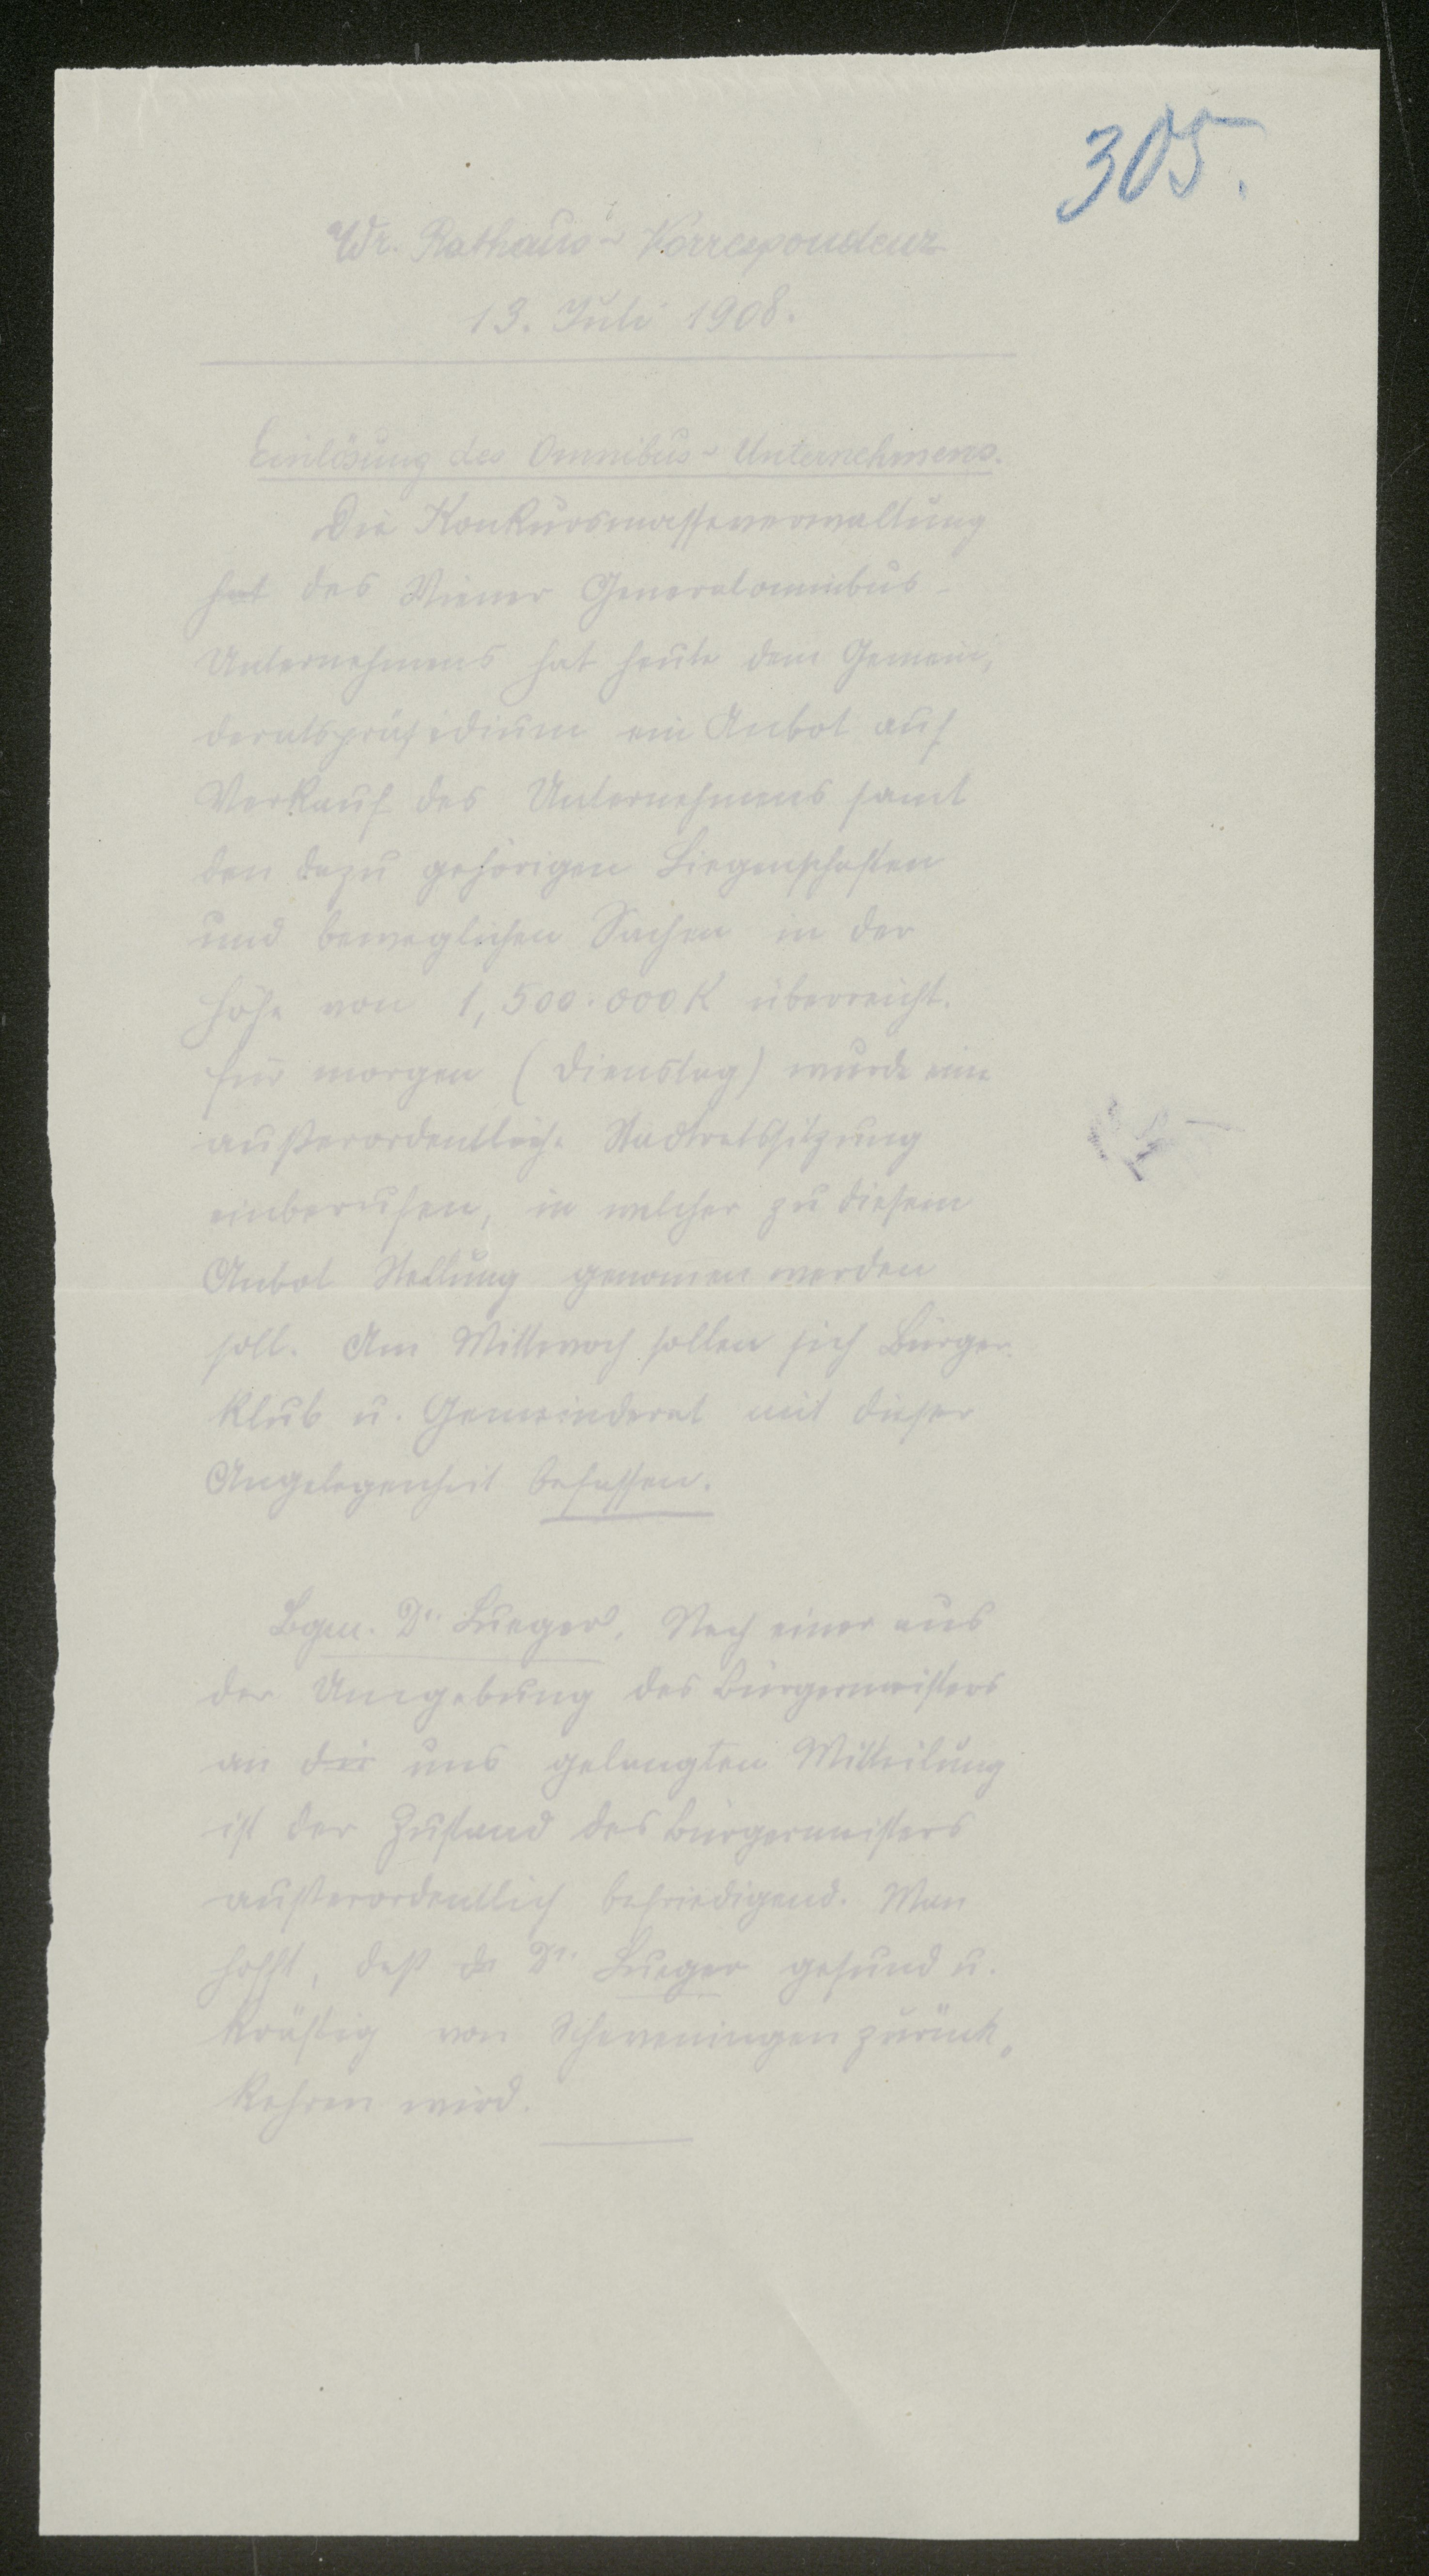 305.
Wr. Rathaus-Korrespondenz
13. Juli 1908.
Einlösung des Omnibus-Unternehmens.
Die Konkursmasseverwaltung
hat des Wiener Generalomnibus-
Unternehmens hat heute dem Gemein-
deratspräsidium ein Anbot auf
Verkauf des Unternehmens samt
den dazu gehörigen Liegenschaften
und beweglichen Sachen in der
Höhe von 1,500.000 K überreicht.
Für morgen (Dienstag) wurde eine
außerordentliche Stadtratssitzung
einberufen, in welcher zu diesem
Anbot Stellung genomen werden
soll. Am Mittwoch sollen sich Bürger-
klub u. Gemeinderat mit dieser
Angelegenheit befassen.
Bgm. Dr. Lueger. Nach einer aus
der Umgebung des Bürgermeisters
an die uns gelangten Mitteilung
ist der Zustand des Bürgermeisters
außerordentlich befriedigend. Man
hofft, daß Dr. Lueger gesund u.
kräftig von Scheveningen zurück-
kehren wird.